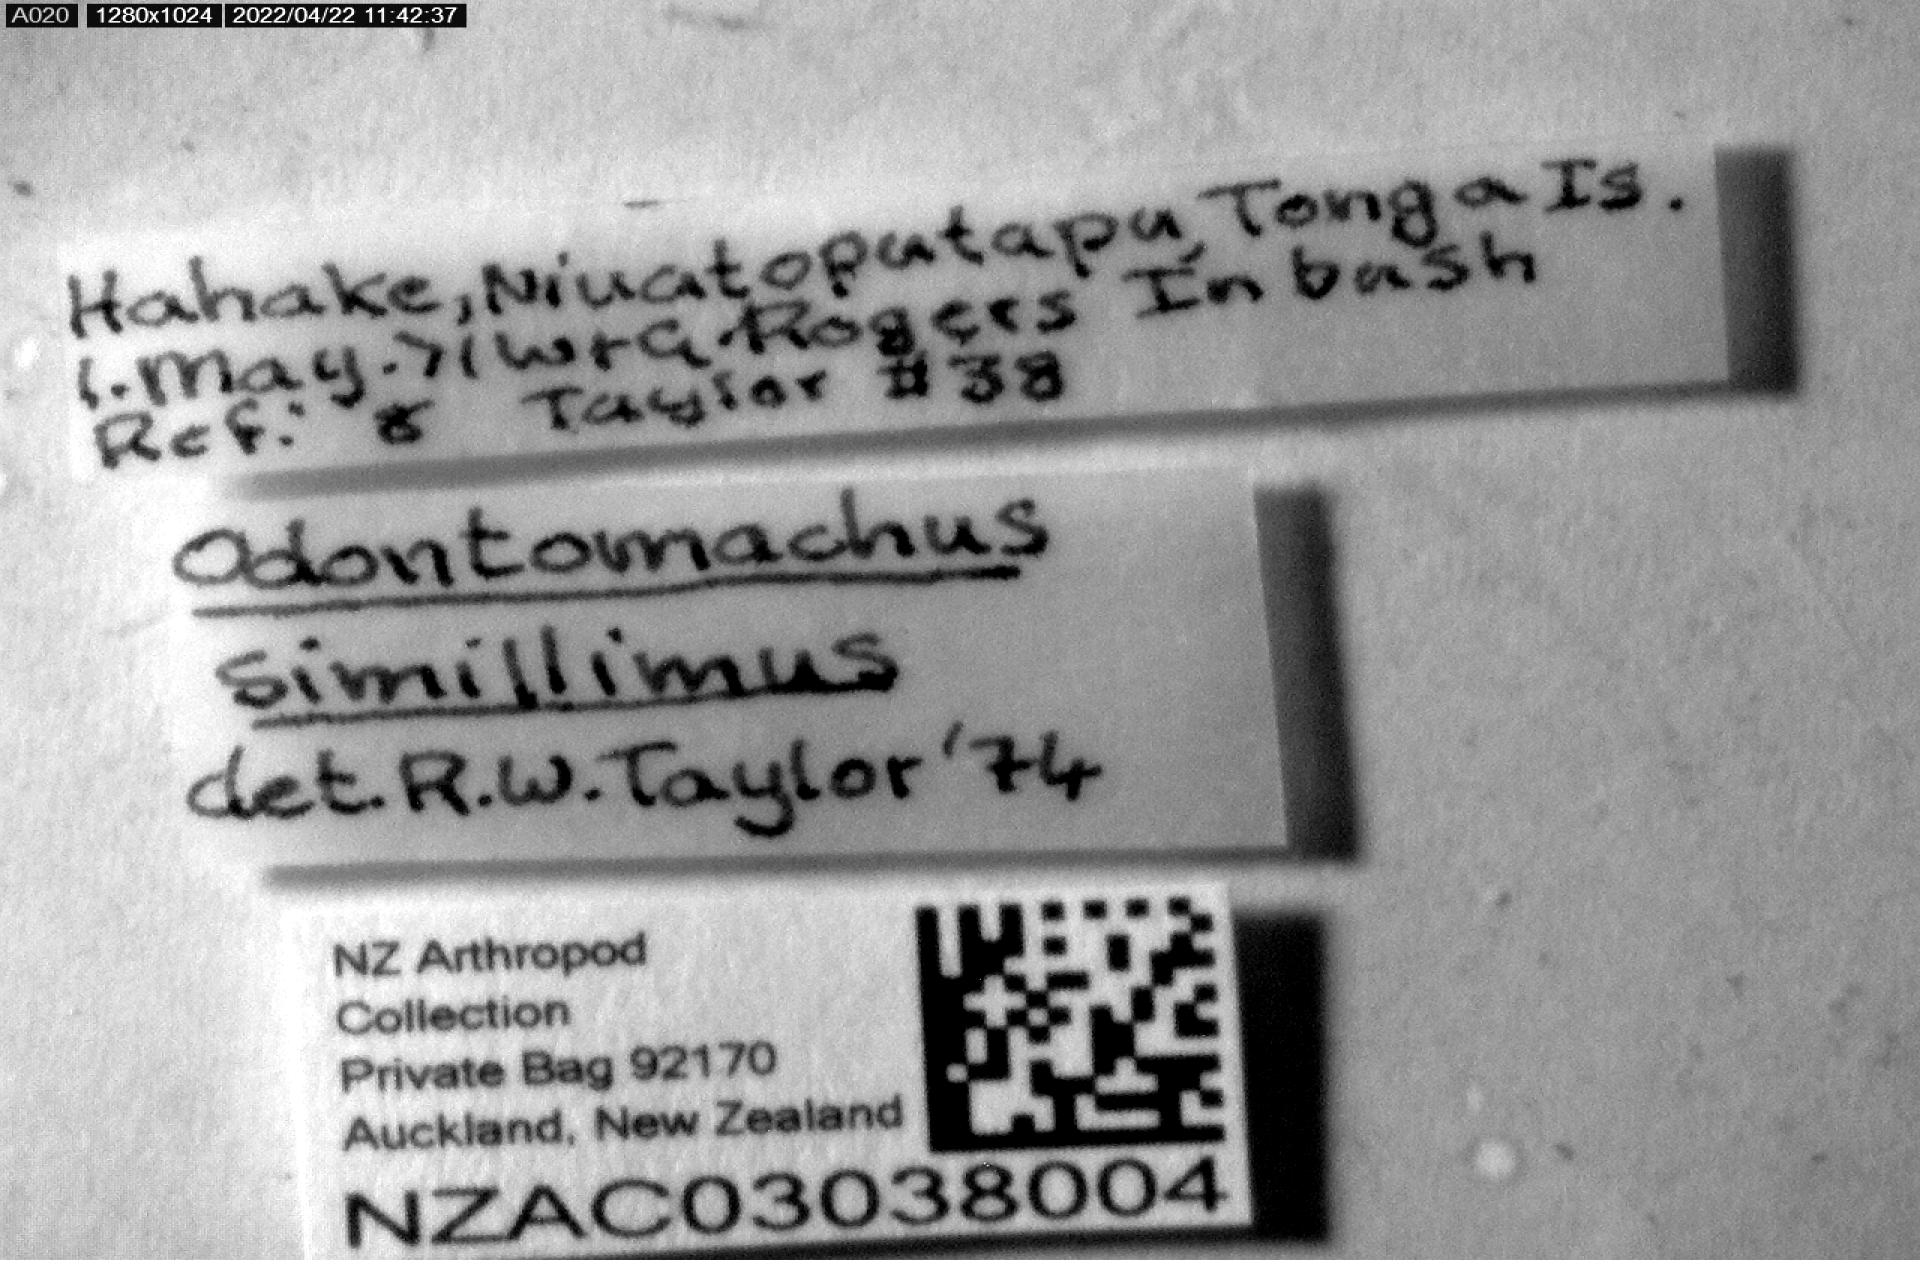 A020 1280x1024 2022/04/22 11:42:37
Hahake, Niuatoputapu, Tonga Is.
1. May. 71 W+G. Rogers In bush
Ref: 8 Taylor #38
Odontomachus
simillimus
det. R.W. Taylor '74
NZ Arthropod
Collection
Private Bag 92170
Auckland, New Zealand
NZAC03038004